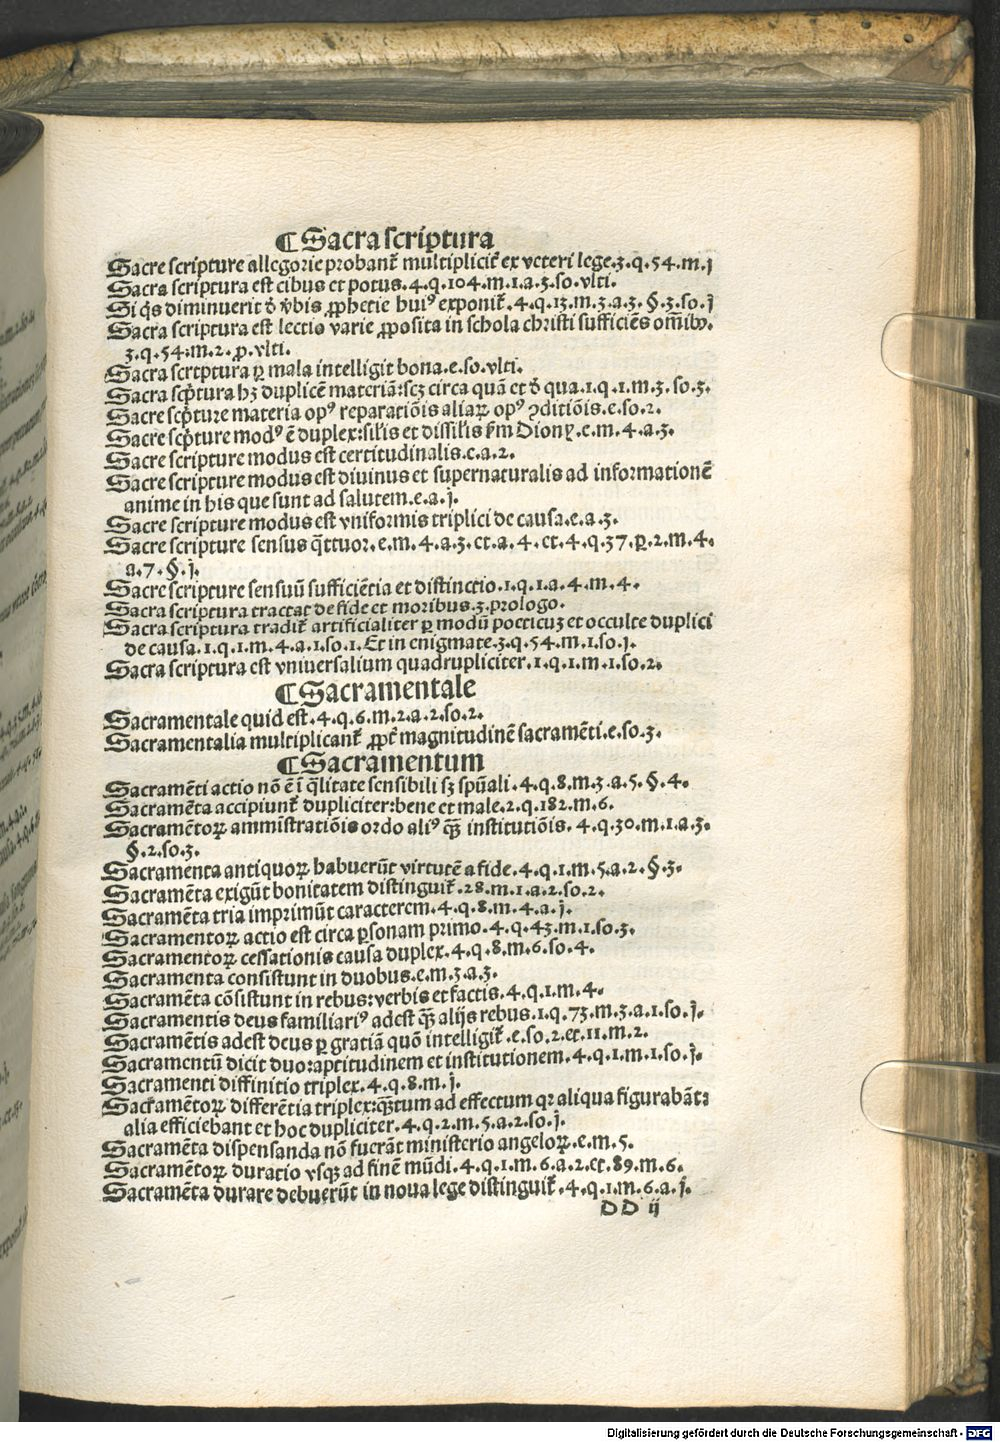 ¶ Sacra scriptura
Sacre scripture allegorie probant̃ multiplicit̃ ex veteri lege.3.q.54.m.j
Sacra scriptura est cibus et potus.4.q.104.m.1.a.3.so.vlti.
Si q̃s diminuerit ꝺ̓ v̓bis ꝓphetie huiꝰ exponit̃.4.q.13.m.3.a.3.§.3.so.j
Sacra scriptura est lectio varie ꝓposita in schola christi sufficiẽs om̃ibꝰ.
3.q.54.m.2.ꝑ.vlti.
Sacra scrtptura ꝑ mala intelligit bona.e.so.vlti.
Sacra scp̃tura hꝫ duplicẽ materiã:scꝫ circa quã et ꝺ̓ qua.1.q.1.m.3.so.3.
Sacre scp̃ture materia opꝰ reparatiõis aliaꝝ opꝰ ꝯditiõis.e.so.2.
Sacre scp̃ture modꝰ ẽ duplex:sil̃is et dissil̃is s̃m Diony.e.m.4.a.3.
Sacre scripture modus est certitudinalis.e.a.2.
Sacre scripture modus est divinus et supernaturalis ad informationẽ
anime in his que sunt ad salutem.e.a.j.
Sacre scripture modus est vniformis triplici de causa.e.a.3.
Sacre scripture sensus q̃ttuor.e.m.4.a.3.et.a.4.et.4.q.37.ꝑ.2.m.4.
a.7.§.j.
Sacre scripture sensuũ sufficiẽtia et distinctio.1.q.1.a.4.m.4.
Sacra scriptura tractat de fide et moribus.3.prologo.
Sacra scriptura tradit̃ artificialiter ꝑ modũ poeticuꝫ et occulte duplici
de causa.1.q.1.m.4.a.1.so.1.Et in enigmate.3.q.54.m.1.so.j.
Sacra scriptura est vniuersalium quadrupliciter.1.q.1.m.1.so.2.
¶ Sacramentale
Sacramentale quid est.4.q.6.m.2.a.2.so.2.
Sacramentalia multiplicant̃ ꝓpt̃ magnitudinẽ sacramẽti.e.so.3.
¶ Sacramentum
Sacramẽti actio nõ ẽ ĩ q̃litate sensibili sꝫ spũali.4.q.8.m.3.a.5.§.4.
Sacramẽta accipiunt̃ dupliciter:bene et male.2.q.182.m.6.
Sacramẽtoꝝ ammistratiõis ordo aliꝰ q̃ꝫ institutiõis.4.q.30.m.1.a.3.
§.2.so.3.
Sacramenta antiquoꝝ habuerũt virtutẽ a fide.4.q.1.m.5.a.2.§.3.
Sacramẽta exigũt bonitatem distinguit̃.28.m.1.a.2.so.2.
Sacramẽta tria imprimũt caracterem.4.q.8.m.4.a.j.
Sacramentoꝝ actio est circa ꝑsonam primo.4.q.43.m.1.so.3.
Sacramentoꝝ cessationis causa duplex.4.q.8.m.6.so.4.
Sacramenta consistunt in duobus.e.m.3.a.3.
Sacramẽta cõsistunt in rebus:verbis et factis.4.q.1.m.4.
Sacramentis deus familiariꝰ adest q̃ꝫ alijs rebus.1.q.73.m.3.a.1.so.j.
Sacramẽtis adest deus ꝑ gratiã quõ intelligit̃.e.so.2.et.11.m.2.
Sacramentũ dicit duo:aptitudinem et institutionem.4.q.1.m.1.so.j.
Sacramenti diffinitio triplex.4.q.8.m.j.
Sacramẽtoꝝ differẽtia triplex:q̃ꝫtum ad effectum qꝛ aliqua figurabãt:
alia efficiebant et hoc dupliciter.4.q.2.m.5.a.2.so.j.
Sacramẽta dispensanda nõ fuerãt ministerio angeloꝝ.e.m.5.
Sacramẽtoꝝ duratio vsqꝫ ad finẽ mũdi.4.q.1.m.6.a.2.et.89.m.6.
Sacramẽta durare debuerũt in noua lege distinguit̃.4.q.1.m.6.a.j.
DD ij
Digitalisierung gefördert durch die Deutsche Forschungsgemeinschaft - DFG